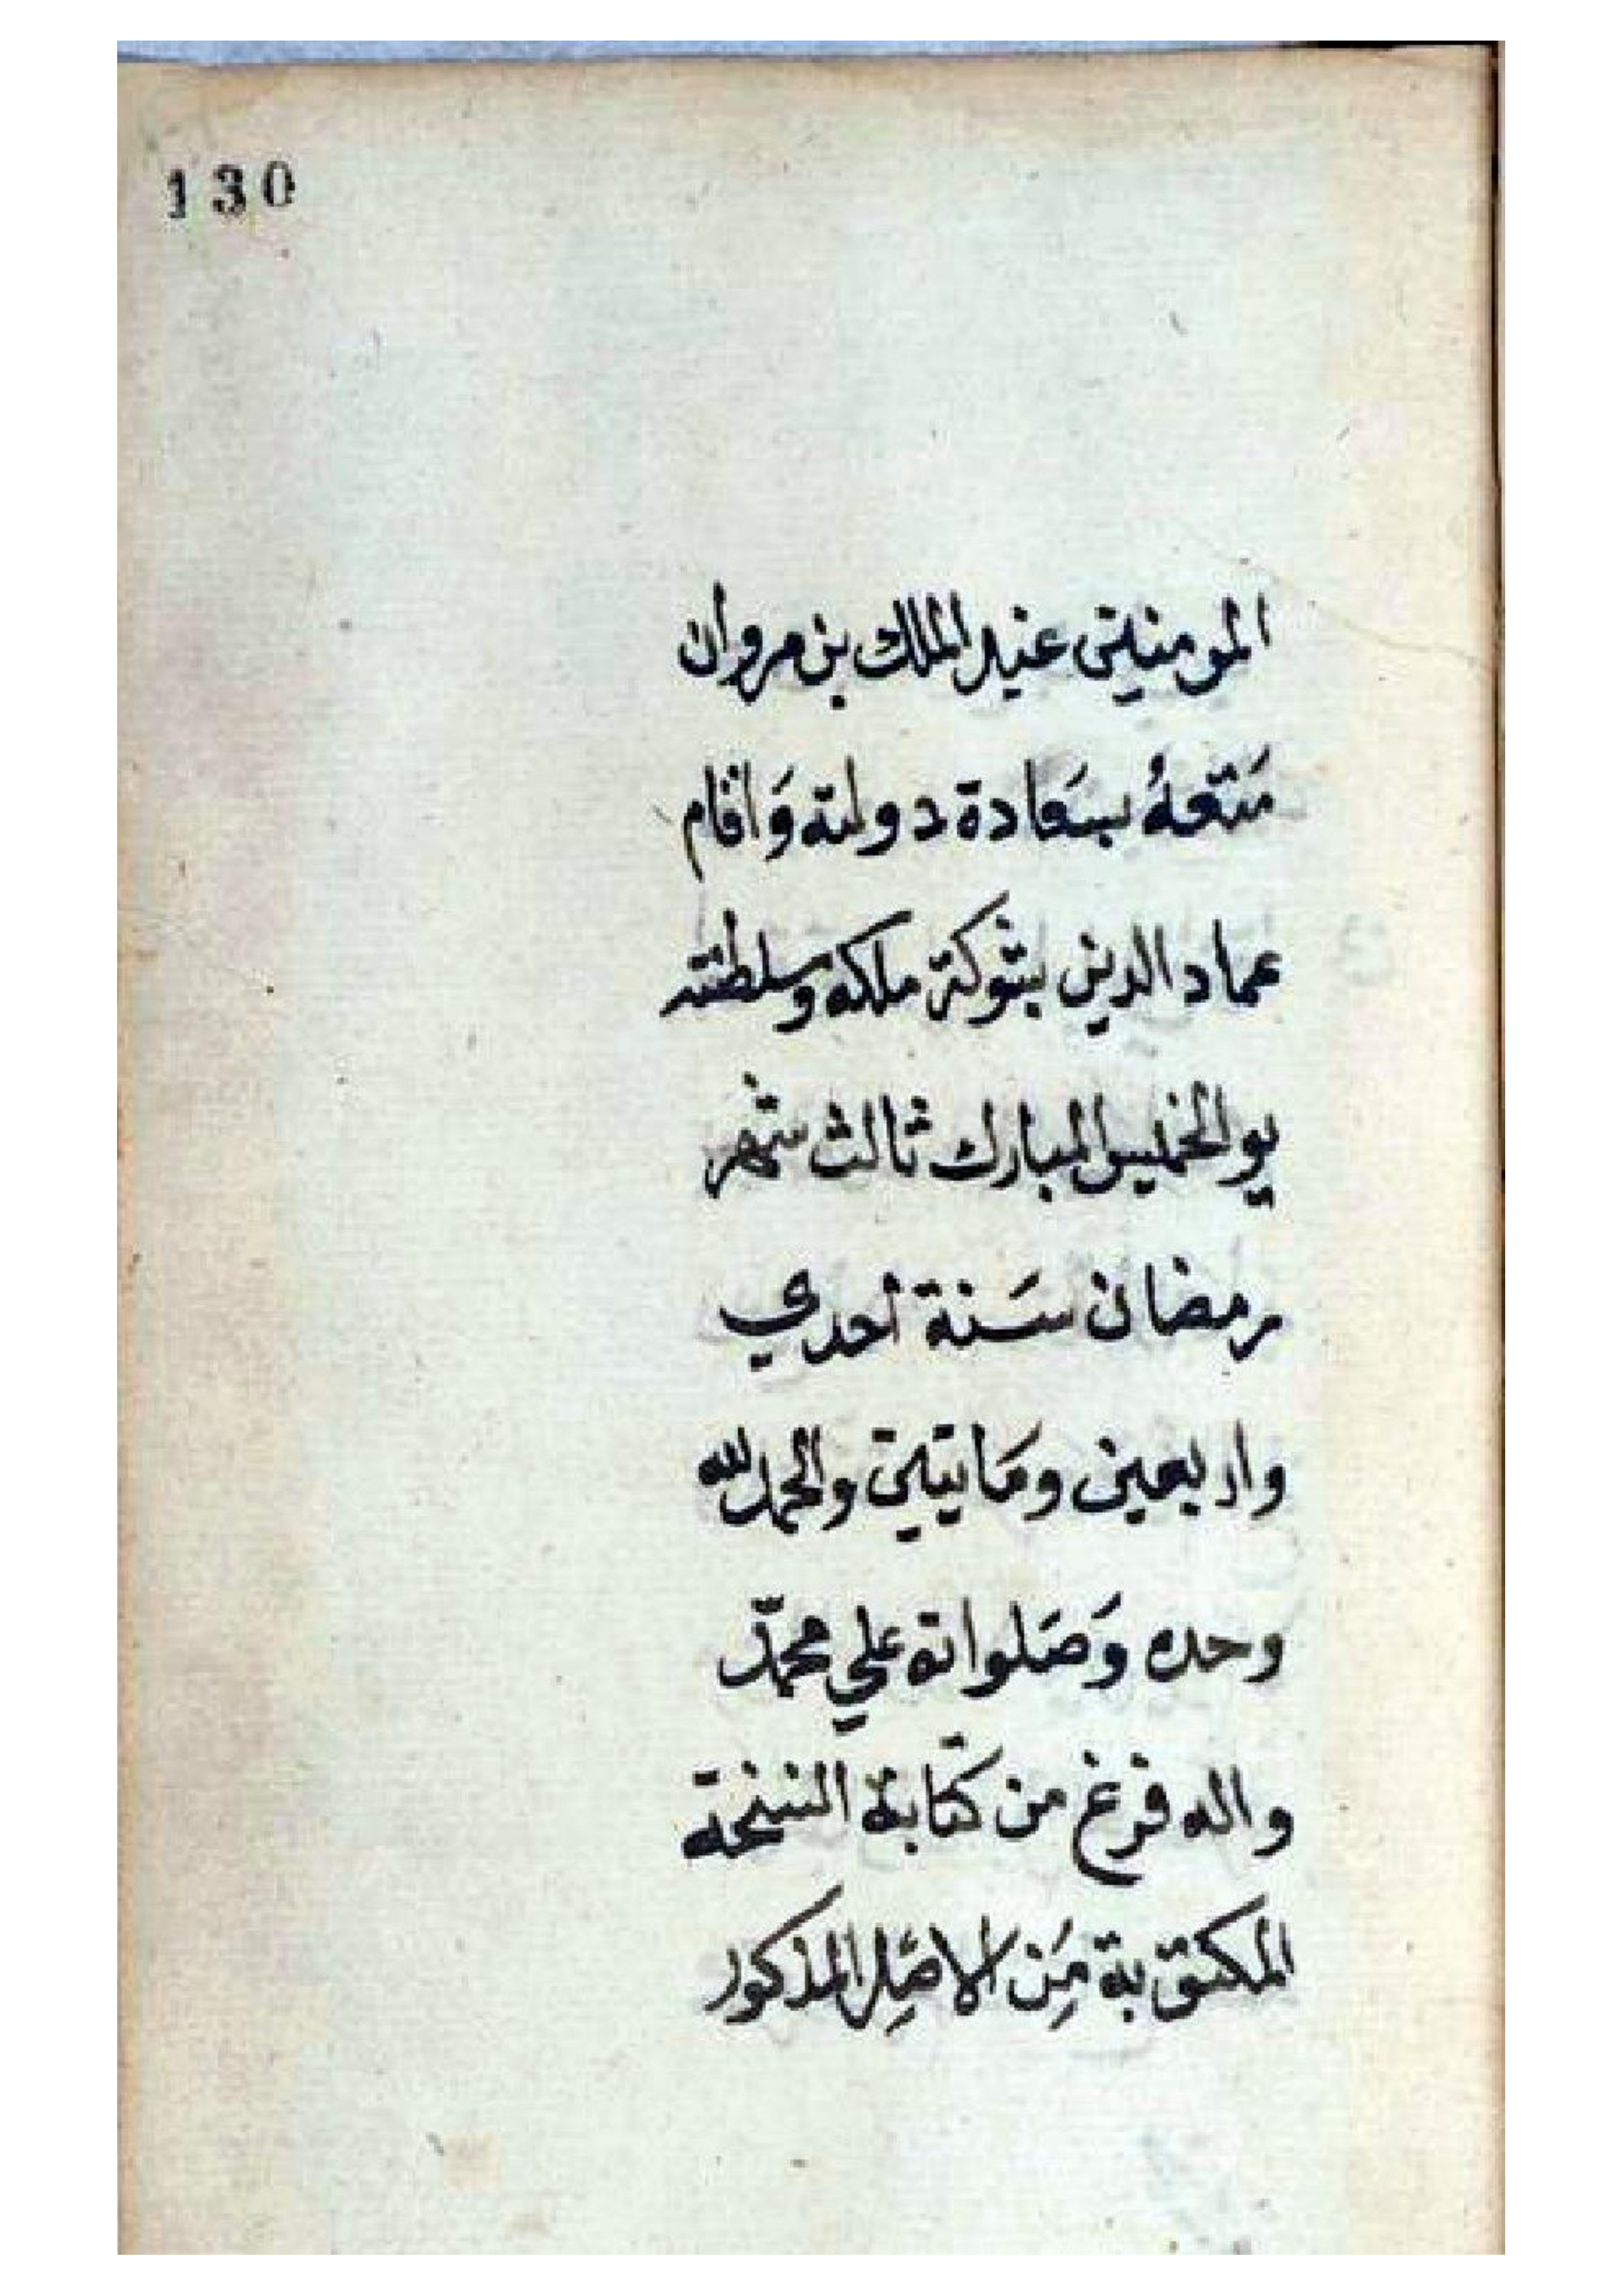 130
المومنين عبد الملك بن مروان
مَتّعهُ بسَعادة دولته وَاقام
عماد الدين بشوكة ملكه وسلطنته
يو الخميس المبارك ثالث شهر
رمضان سَنة احدي
واربعين ومَايتين والحمد لله
وحده وَصَلواته علي محمّد
واله فرغ من كتابة النسخة
المكتوبة مِن الاصِل المذكور